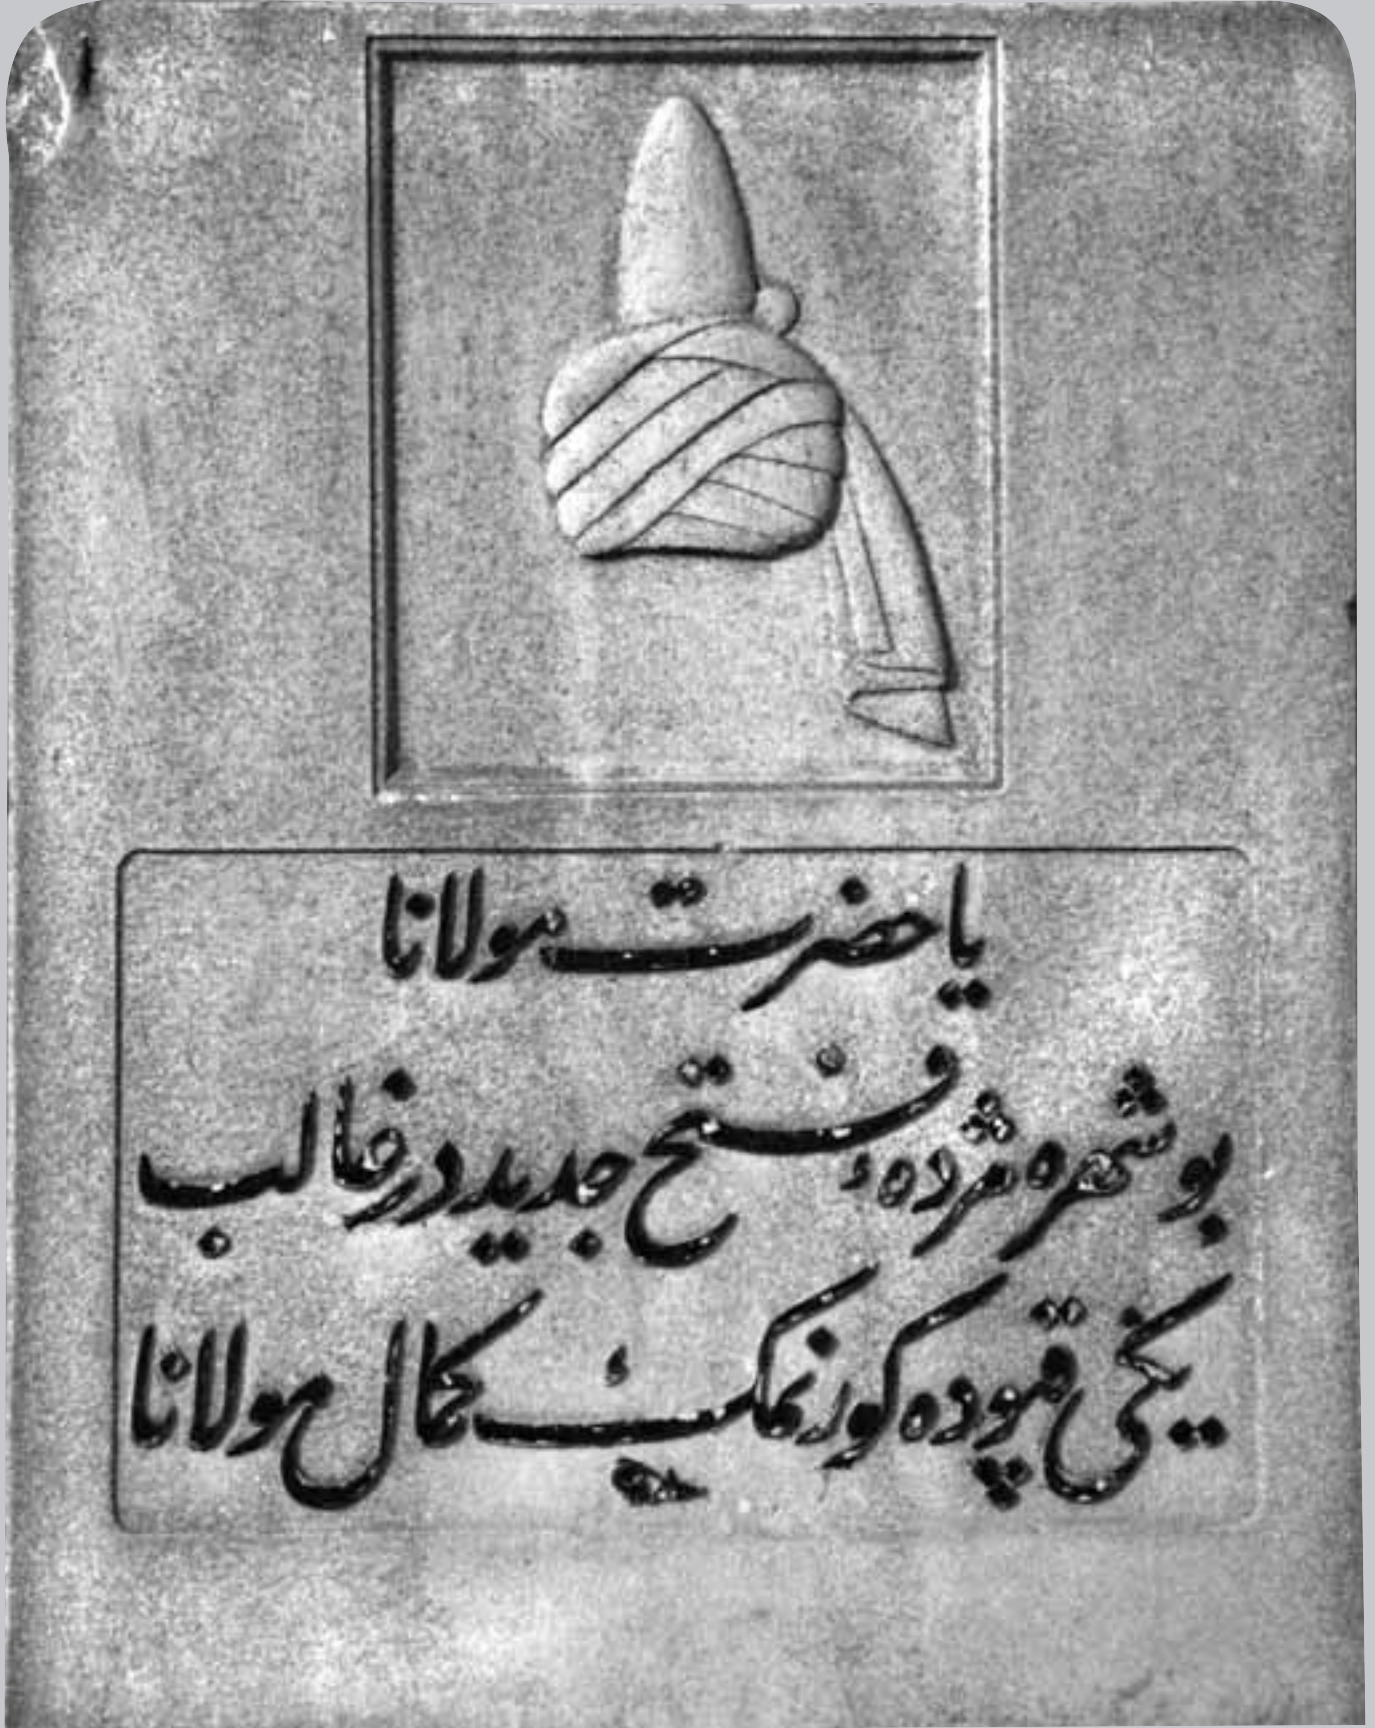 يا حضرت مولانا
بو شهره مژدهٔ فتح جديددر غالب
يكى قپوده كورنمك كمال مولانا